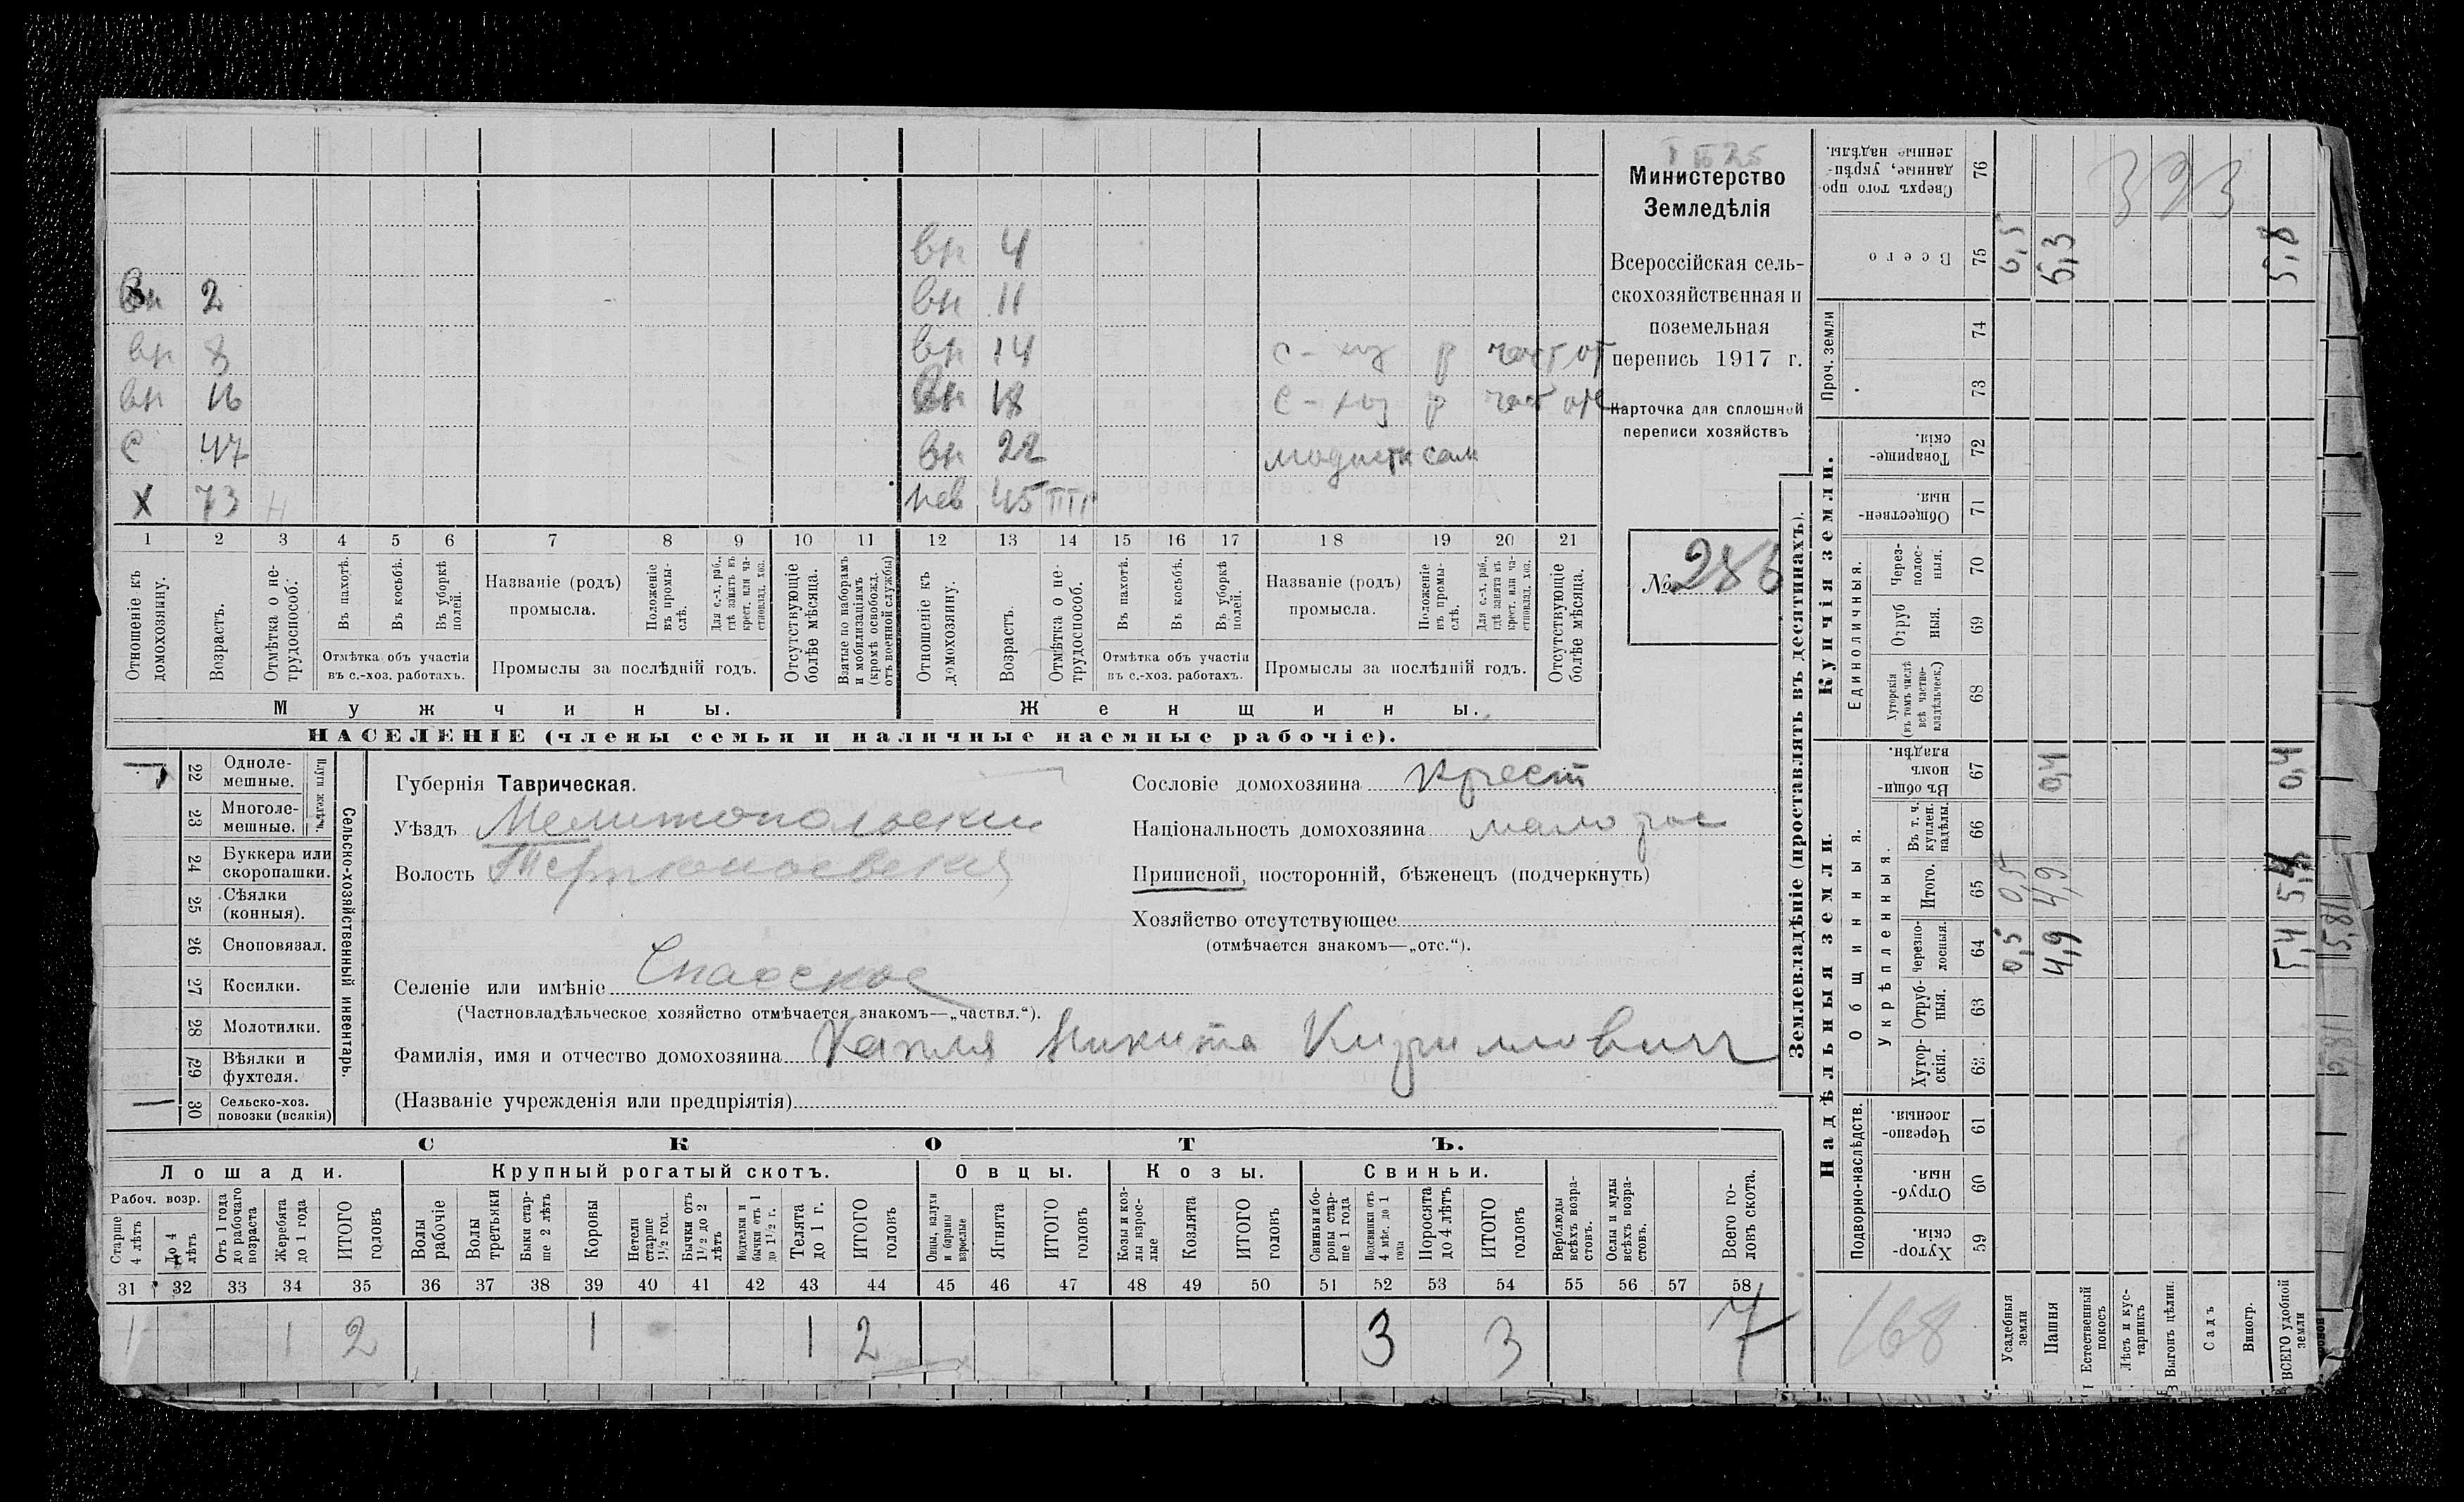 вн 4
вн 2 вн 11
вн 8 вн 14 с-хоз р част от
вн 16 вн 18 с-хоз р част
с 47 вн 22 модистк сам
х 73 н нев 45
1 2 3 4 5 6 7 8 9 10 11 12 13 14 15 16 17 18 19 20 21
Отношеніе къ домохозяину.
Возрастъ.
Отмѣтка о не-трудоспособ.
Въ пахотѣ.
Въ косьбѣ.
Въ уборкѣ полей.
Отмѣтка объ участіи
въ с.-хоз. работахъ.
Названіе (родъ)
промысла.
Положеніе въ промы-слѣ.
Для с.-х. раб., гдѣ занятъ въ крест. или ча-стновлад. хоз.
Промыслы за послѣдній годъ.
Отсутствующіе болѣе мѣсяца.
Взятые по наборамъ и мобилизаціямъ (кромѣ освобожд. отъ военной службы)
Отношеніе къ домохозяину.
Возрастъ.
Отмѣтка о не-трудоспособ.
Въ пахотѣ.
Въ косьбѣ.
Въ уборкѣ полей.
Отмѣтка объ участіи
въ с.-хоз. работахъ.
Названіе (родъ)
промысла.
Положеніе въ промы-слѣ.
Для с.-х. раб., гдѣ занята въ крест. или ча-стновлад. хоз.
Промыслы за послѣдній годъ.
Отсутствующіе болѣе мѣсяца.
Мужчины.
Женщины.
НАСЕЛЕНІЕ (члены семьи и наличные наемные рабочіе).
Министерство
Земледѣлія
Всероссійская сель-
скохозяйственная и
поземельная
перепись 1917 г.
Карточка для сплошной
переписи хозяйствъ
№ 286
22 Одноле-
мешные.
23 Многоле-
мешные.
Плуги желѣзн.
24 Буккера или
скоропашки.
25 Сѣялки
(конныя).
26 Сноповязал.
27 Косилки.
28 Молотилки.
29 Вѣялки и
фухтеля.
30 Сельско-хоз.
повозки (всякія)
Сельско-хозяйственный инвентарь.
Губернія Таврическая.
Уѣздъ Мелитопольский
Волость
Селеніе или имѣніе Спасское
(Частновладѣльческое хозяйство отмѣчается знакомъ—„частвл.“).
Фамилія, имя и отчество домохозяина Капля Никита Кириллович
(Названіе учрежденія или предпріятія)
Сословіе домохозяина Крест
Національность домохозяина малорос
Приписной, посторонній, бѣженецъ (подчеркнуть)
Хозяйство отсутствующее
(отмѣчается знакомъ—„отс.“).
СКОТЪ.
Лошади. Крупный рогатый скотъ. Овцы. Козы. Свиньи.
Рабоч. возр.
Старше 4 лѣтъ
До 4 лѣтъ
Отъ 1 года до рабочаго возраста
Жеребята до 1 года
ИТОГО головъ
Волы рабочіе
Волы третьяки
Быки стар-ше 2 лѣтъ
Коровы
Нетели старше 1½ год.
Бычки отъ 1½ до 2 лѣтъ
Подтелки и бычки отъ 1 до 1½ г.
Телята до 1 г.
ИТОГО головъ
Овцы, валухи и бараны взрослые
Ягнята
ИТОГО головъ
Козы и коз-лы взрос-лые
Козлята
ИТОГО головъ
Свиньи и бо-ровы стар-ше 1 года
Подсвинки отъ 4 мѣс. до 1 года
Поросята до 4 лѣтъ
ИТОГО головъ
Верблюды всѣхъ возра-стовъ.
Ослы и мулы всѣхъ возра-стовъ.
Всего го-ловъ скота.
31 32 33 34 35 36 37 38 39 40 41 42 43 44 45 46 47 48 49 50 51 52 53 54 55 56 57 58
1 1 2 1 1 2 3 3 7
Землевладѣніе (проставлять въ десятинахъ).
Надѣльныя земли. Купчія земли.
Подворно-наслѣдств.
Общинныя.
Укрѣпленныя.
Единоличныя.
Проч. земли
Хутор-скія. 59
Отруб-ныя. 60
Черезпо-лосныя. 61
Хутор-скія. 62
Отруб-ныя. 63
Черезпо-лосныя. 64
Итого. 65
Въ т. ч. куплен. надѣлы. 66
Въ общи-номъ владѣн. 67
Хуторскія (въ томъ числѣ всѣ частно-владѣльческ.) 68
Отруб ныя. 69
Через-полос-ныя. 70
Обществен-ныя. 71
Товарище-скія. 72
73
74
Всего 75
Сверхъ того про-данные, укрѣп-ленные надѣлы. 76
Усадебныя земли 0,5 0,5 0,5
Пашня 4,9 4,9 0,4 5,3
Естественный покосъ
Лѣсъ и кус-тарникъ
Выгонъ цѣлин.
Садъ
Виногр.
ВСЕГО удобной земли 5,4 5,4 0,4 5,8
393
168